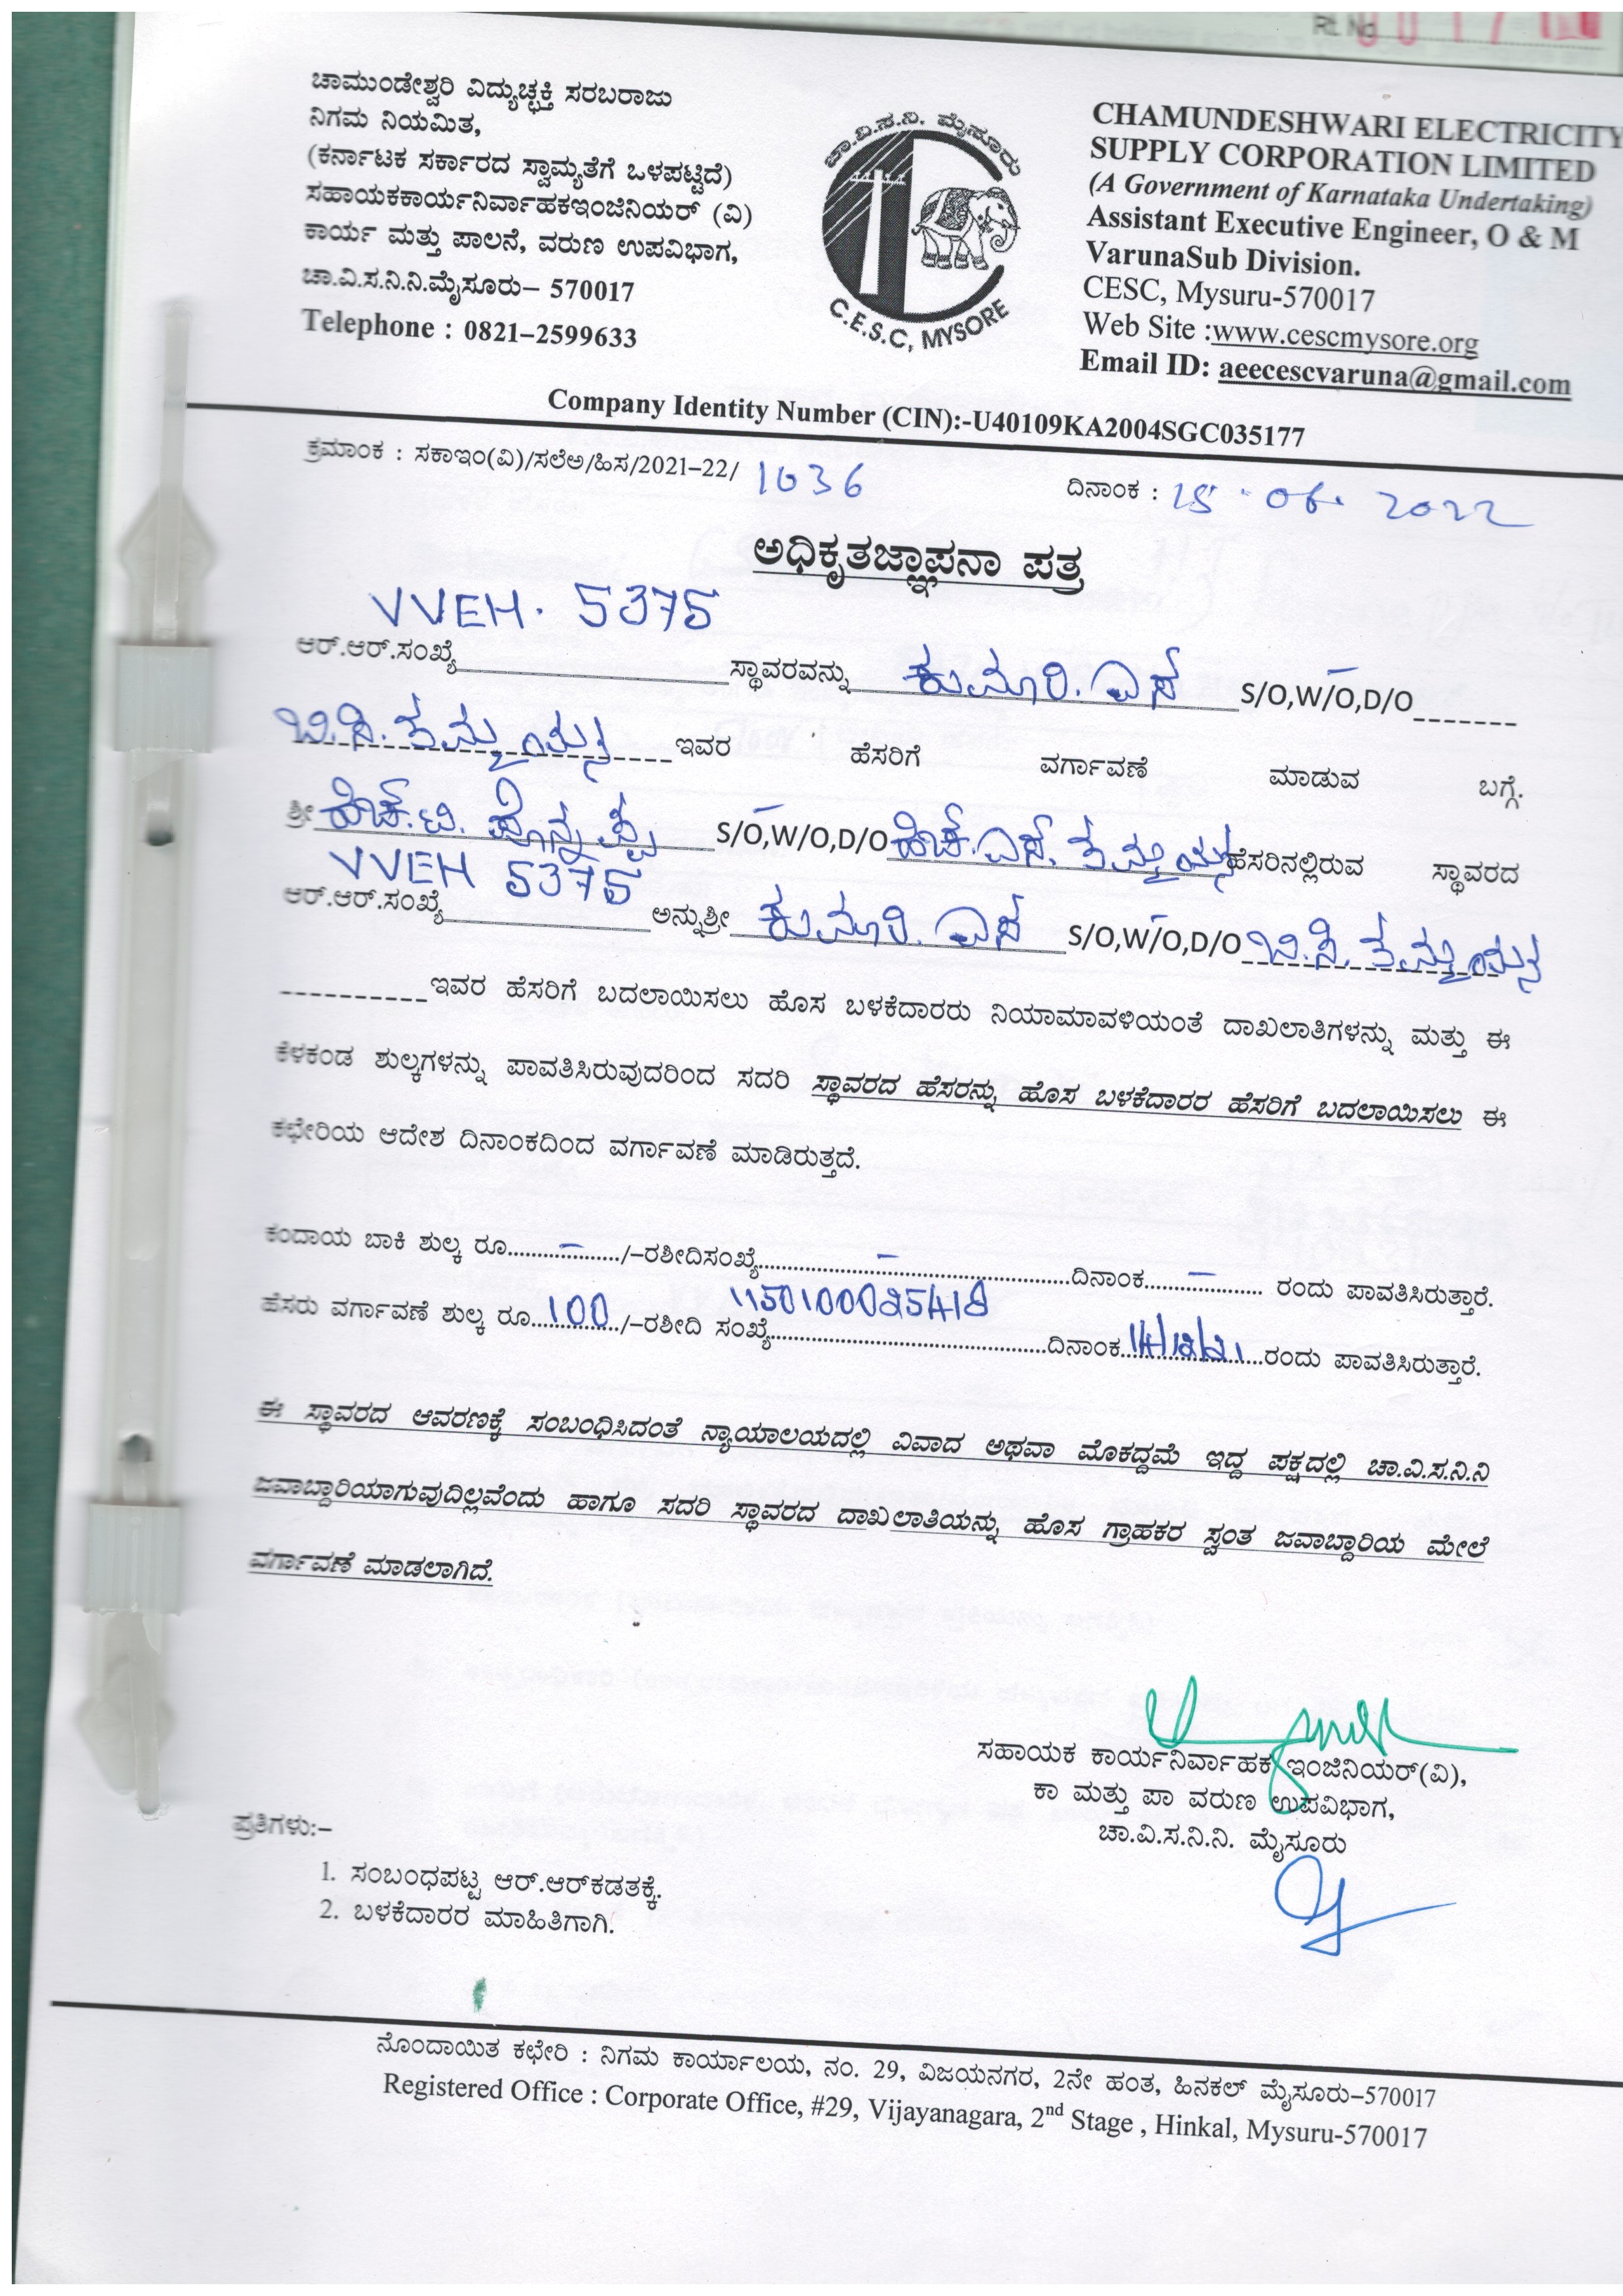 Rt. No 0017
ಚಾಮುಂಡೇಶ್ವರಿ ವಿದ್ಯುಚ್ಛಕ್ತಿ ಸರಬರಾಜು
ನಿಗಮ ನಿಯಮಿತ,
(ಕರ್ನಾಟಕ ಸರ್ಕಾರದ ಸ್ವಾಮ್ಯತೆಗೆ ಒಳಪಟ್ಟಿದೆ)
ಸಹಾಯಕಕಾರ್ಯನಿರ್ವಾಹಕಇಂಜಿನಿಯರ್ (ವಿ)
ಕಾರ್ಯ ಮತ್ತು ಪಾಲನೆ, ವರುಣ ಉಪವಿಭಾಗ,
ಚಾ.ವಿ.ಸ.ನಿ.ನಿ.ಮೈಸೂರು– 570017
Telephone : 0821–2599633
ಚಾ.ವಿ.ಸ.ನಿ. ಮೈಸೂರು
C.E.S.C, MYSORE
CHAMUNDESHWARI ELECTRICITY
SUPPLY CORPORATION LIMITED
(A Government of Karnataka Undertaking)
Assistant Executive Engineer, O & M
VarunaSub Division.
CESC, Mysuru-570017
Web Site :www.cescmysore.org
Email ID: aeecescvaruna@gmail.com
Company Identity Number (CIN):-U40109KA2004SGC035177
ಕ್ರಮಾಂಕ : ಸಕಾಇಂ(ವಿ)/ಸಲೆಅ/ಹಿಸ/2021–22/ 1036 ದಿನಾಂಕ : 15.06.2022
ಅಧಿಕೃತಜ್ಞಾಪನಾ ಪತ್ರ
VVEH. 5375
ಆರ್.ಆರ್.ಸಂಖ್ಯೆ ಸ್ಥಾವರವನ್ನು ಕುಮಾರಿ. ಎಸ್ S/O,W/O,D/O
ಬಿ.ಸಿ. ತಮ್ಮಯ್ಯ ಇವರ ಹೆಸರಿಗೆ ವರ್ಗಾವಣೆ ಮಾಡುವ ಬಗ್ಗೆ.
ಶ್ರೀ ಹೆಚ್.ಟಿ. ಪೊನ್ನಪ್ಪ S/O,W/O,D/O ಹೆಚ್.ಎಸ್. ತಮ್ಮಯ್ಯ ಹೆಸರಿನಲ್ಲಿರುವ ಸ್ಥಾವರದ
VVEH 5375
ಆರ್.ಆರ್.ಸಂಖ್ಯೆ ಅನ್ನುಶ್ರೀ ಕುಮಾರಿ. ಎಸ್ S/O,W/O,D/O ಬಿ.ಸಿ. ತಮ್ಮಯ್ಯ
ಇವರ ಹೆಸರಿಗೆ ಬದಲಾಯಿಸಲು ಹೊಸ ಬಳಕೆದಾರರು ನಿಯಾಮಾವಳಿಯಂತೆ ದಾಖಲಾತಿಗಳನ್ನು ಮತ್ತು ಈ
ಕೆಳಕಂಡ ಶುಲ್ಕಗಳನ್ನು ಪಾವತಿಸಿರುವುದರಿಂದ ಸದರಿ ಸ್ಥಾವರದ ಹೆಸರನ್ನು ಹೊಸ ಬಳಕೆದಾರರ ಹೆಸರಿಗೆ ಬದಲಾಯಿಸಲು ಈ
ಕಛೇರಿಯ ಆದೇಶ ದಿನಾಂಕದಿಂದ ವರ್ಗಾವಣೆ ಮಾಡಿರುತ್ತದೆ.
ಕಂದಾಯ ಬಾಕಿ ಶುಲ್ಕ ರೂ.........–........./–ರಶೀದಿಸಂಖ್ಯೆ..........–..........ದಿನಾಂಕ......–...... ರಂದು ಪಾವತಿಸಿರುತ್ತಾರೆ.
ಹೆಸರು ವರ್ಗಾವಣೆ ಶುಲ್ಕ ರೂ...100.../–ರಶೀದಿ ಸಂಖ್ಯೆ 1150100025418 ದಿನಾಂಕ 14/12/21 ರಂದು ಪಾವತಿಸಿರುತ್ತಾರೆ.
ಈ ಸ್ಥಾವರದ ಆವರಣಕ್ಕೆ ಸಂಬಂಧಿಸಿದಂತೆ ನ್ಯಾಯಾಲಯದಲ್ಲಿ ವಿವಾದ ಅಥವಾ ಮೊಕದ್ದಮೆ ಇದ್ದ ಪಕ್ಷದಲ್ಲಿ ಚಾ.ವಿ.ಸ.ನಿ.ನಿ
ಜವಾಬ್ದಾರಿಯಾಗುವುದಿಲ್ಲವೆಂದು ಹಾಗೂ ಸದರಿ ಸ್ಥಾವರದ ದಾಖಲಾತಿಯನ್ನು ಹೊಸ ಗ್ರಾಹಕರ ಸ್ವಂತ ಜವಾಬ್ದಾರಿಯ ಮೇಲೆ
ವರ್ಗಾವಣೆ ಮಾಡಲಾಗಿದೆ.
ಸಹಾಯಕ ಕಾರ್ಯನಿರ್ವಾಹಕ ಇಂಜಿನಿಯರ್(ವಿ),
ಕಾ ಮತ್ತು ಪಾ ವರುಣ ಉಪವಿಭಾಗ,
ಚಾ.ವಿ.ಸ.ನಿ.ನಿ. ಮೈಸೂರು
ಪ್ರತಿಗಳು:–
1. ಸಂಬಂಧಪಟ್ಟ ಆರ್.ಆರ್‌ಕಡತಕ್ಕೆ.
2. ಬಳಕೆದಾರರ ಮಾಹಿತಿಗಾಗಿ.
ನೊಂದಾಯಿತ ಕಛೇರಿ : ನಿಗಮ ಕಾರ್ಯಾಲಯ, ನಂ. 29, ವಿಜಯನಗರ, 2ನೇ ಹಂತ, ಹಿನಕಲ್ ಮೈಸೂರು–570017
Registered Office : Corporate Office, #29, Vijayanagara, 2nd Stage , Hinkal, Mysuru-570017